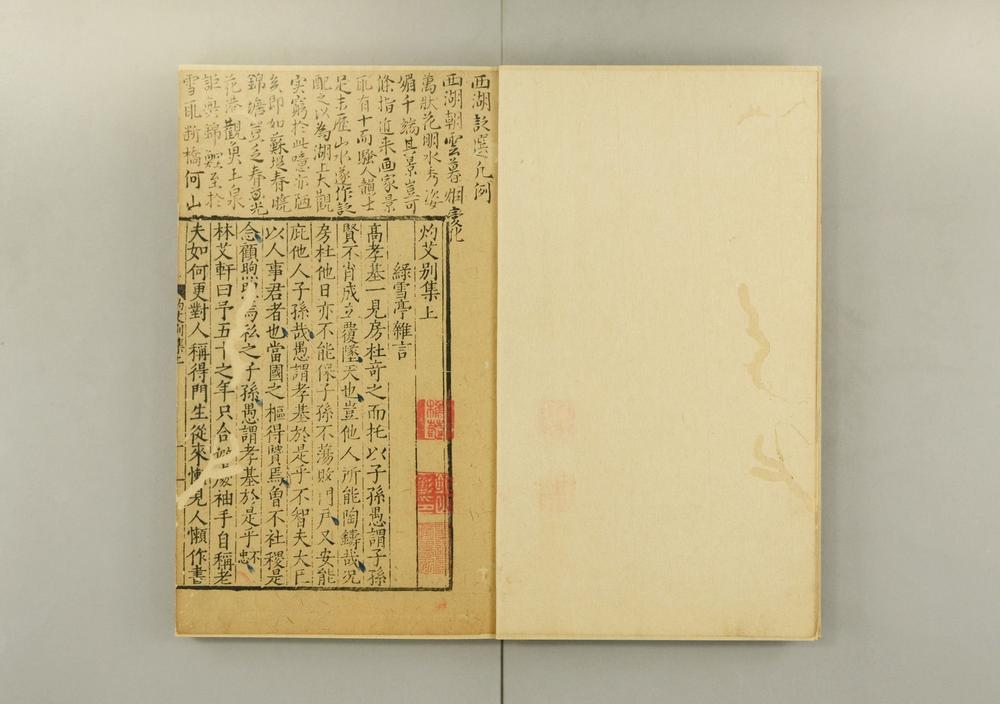 西湖説選凡例
西湖朝雲暮烟變化
萬狀花明水秀姿
媚千端其景豈可
條指近来画家景
配有十而騷人韻士
足未歴山水遂作説
配之以為湖上大觀
実窮於此噫亦陋
矣即如蘇堤春曉
錦塘豈乏春光
花港觀魚玉泉
詎無錦鯉至於
雪配断橋何山
灼艾別集上
綠雪亭雜言
高孝基一見房杜竒之而托以子孫愚謂子孫
賢不肖成立覆墜天也豈他人所能陶鑄哉况
房杜他日亦不能保子孫不蕩敗門戸又安能
庇他人子孫哉愚謂孝基於是乎不智夫大臣
以人事君者也當國之樞得賢焉曾不社稷是
念顧眴眴焉私之子孫愚謂孝基於是乎不忠
林艾軒曰予五十之年只合袖手自稱老
夫如何更對人稱得門生從來懶見人懶作書